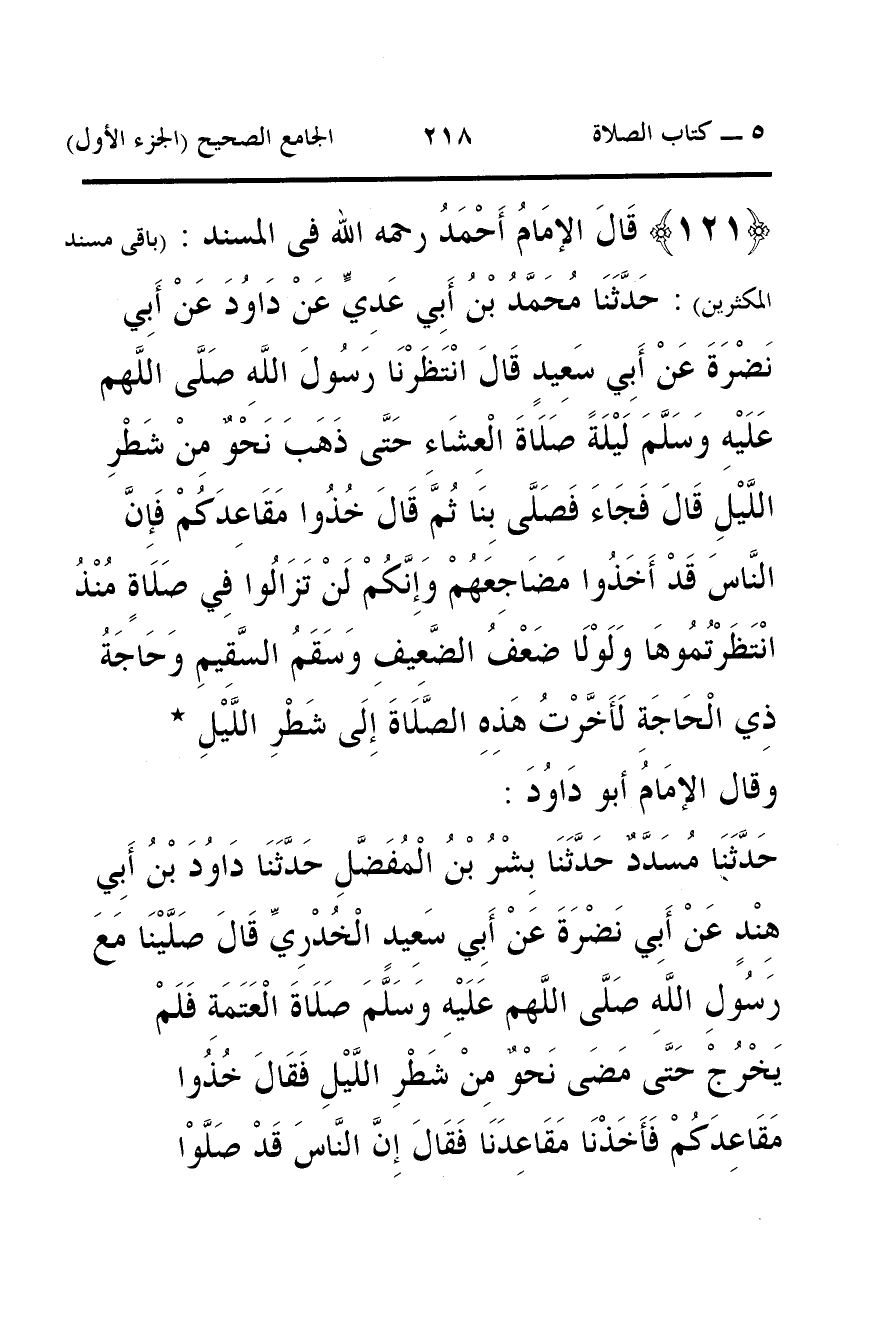 ٥ ــ كتاب الصلاة ٢١٨ الجامع الصحيح (الجزء الأول)
﴿١٢١﴾ قَالَ الإِمَامُ أَحْمَدُ رحمه الله فى المسند : (باقى مسند
المكثرين) : حَدَّثَنَا مُحَمَّدُ بْنُ أَبِي عَدِيٍّ عَنْ دَاوُدَ عَنْ أَبِي
نَضْرَةَ عَنْ أَبِي سَعِيدٍ قَالَ انْتَظَرْنَا رَسُولَ اللَّهِ صَلَّى اللهم
عَلَيْهِ وَسَلَّمَ لَيْلَةً صَلَاةَ الْعِشَاءِ حَتَّى ذَهَبَ نَحْوٌ مِنْ شَطْرِ
اللَّيْلِ قَالَ فَجَاءَ فَصَلَّى بِنَا ثُمَّ قَالَ خُذُوا مَقَاعِدَكُمْ فَإِنَّ
النَّاسَ قَدْ أَخَذُوا مَضَاجِعَهُمْ وَإِنَّكُمْ لَنْ تَزَالُوا فِي صَلَاةٍ مُنْذُ
انْتَظَرْتُمُوهَا وَلَوْلَا ضَعْفُ الضَّعِيفِ وَسَقَمُ السَّقِيمِ وَحَاجَةُ
ذِي الْحَاجَةِ لَأَخَّرْتُ هَذِهِ الصَّلَاةَ إِلَى شَطْرِ اللَّيْلِ *
وقال الإِمَامُ أبو دَاوُدَ :
حَدَّثَنَا مُسَدَّدٌ حَدَّثَنَا بِشْرُ بْنُ الْمُفَضَّلِ حَدَّثَنَا دَاوُدَ بْنُ أَبِي
هِنْدٍ عَنْ أَبِي نَضْرَةَ عَنْ أَبِي سَعِيدٍ الْخُدْرِيِّ قَالَ صَلَّيْنَا مَعَ
رَسُولِ اللَّهِ صَلَّى اللهم عَلَيْهِ وَسَلَّمَ صَلَاةَ الْعَتَمَةِ فَلَمْ
يَخْرُجْ حَتَّى مَضَى نَحْوٌ مِنْ شَطْرِ اللَّيْلِ فَقَالَ خُذُوا
مَقَاعِدَكُمْ فَأَخَذْنَا مَقَاعِدَنَا فَقَالَ إِنَّ النَّاسَ قَدْ صَلَّوْا